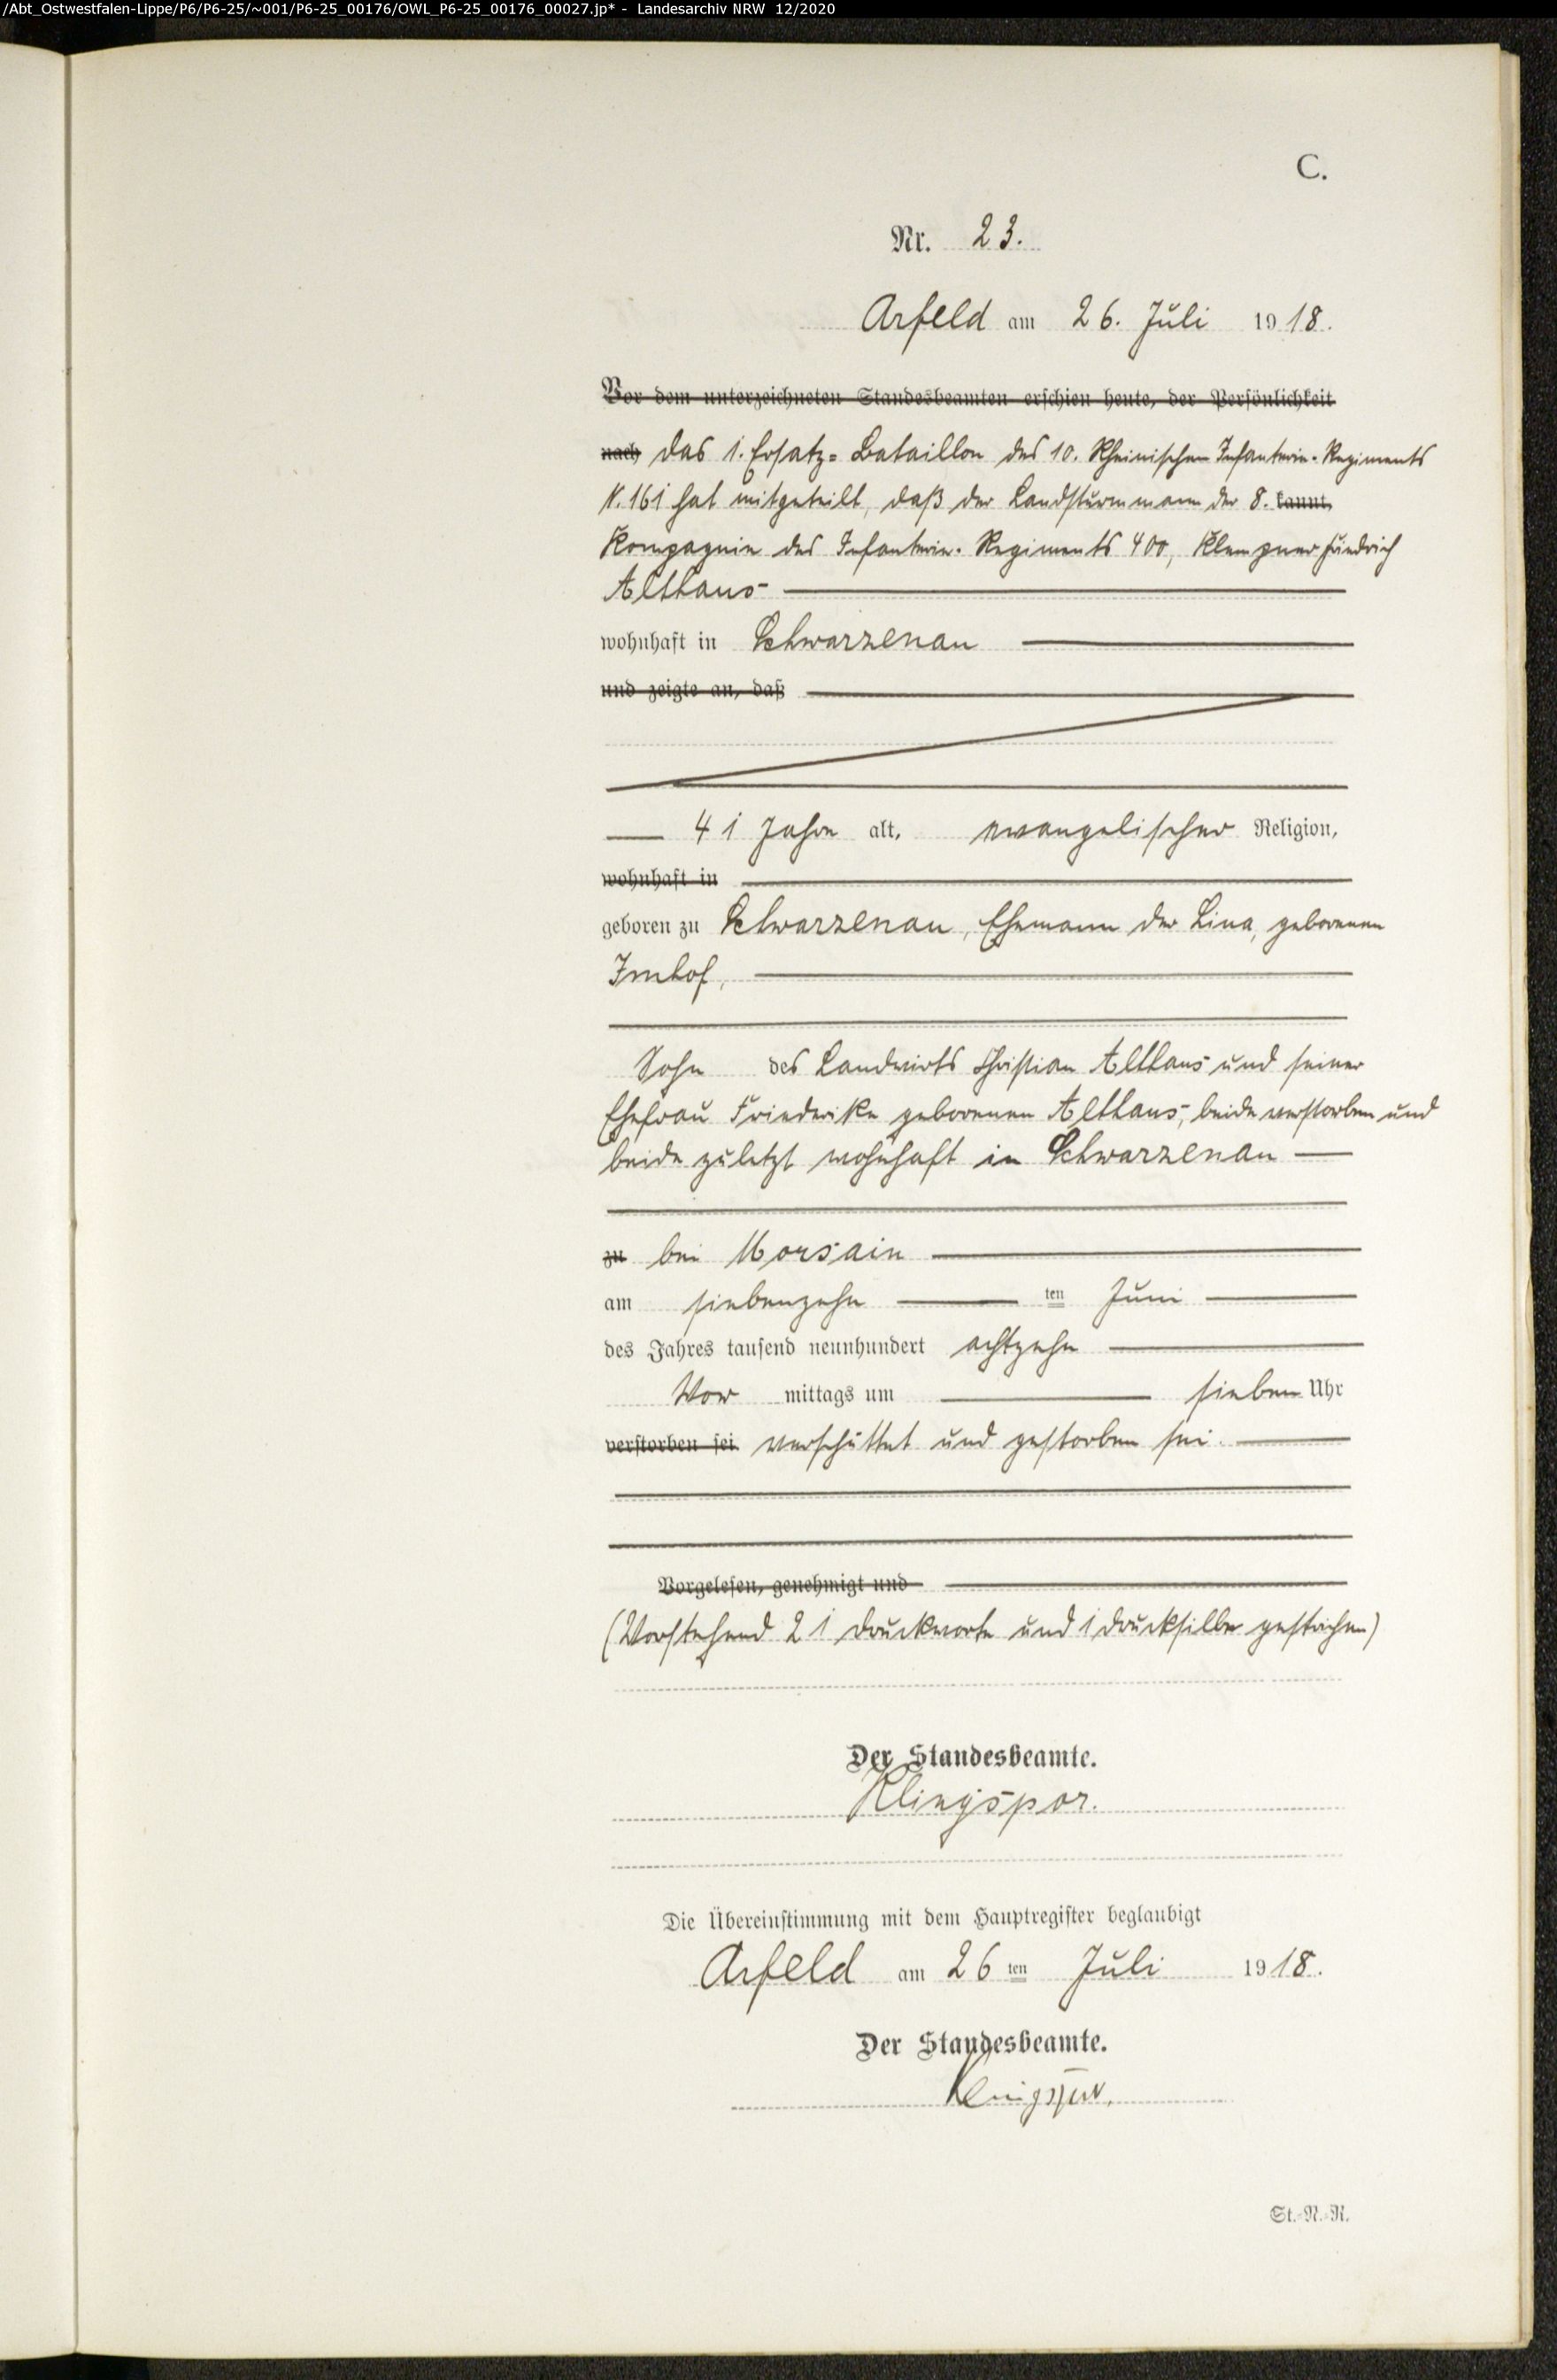 /Abt_Ostwestfalen-Lippe/P6/P6-25/~001/P6-25_00176/OWL_P6-25_00176_00027.jp* - Landesarchiv NRW 12/2020
C.
Nr. 23.
Arfeld am 26. Juli 1918.
Vor dem unterzeichneten Standesbeamten erschien heute, der Persönlichkeit
nach das 1. Ersatz-Bataillon des 10. Rheinischen Infanterie-Regiments
N. 161 hat mitgeteilt, daß der Landsturmmann der 8. kannt,
Kompagnie des Infanterie-Regiments 400, Klempner Friedrich
Althaus
wohnhaft in Schwarzenau
und zeigte an, daß
41 Jahre alt, evangelischer Religion,
wohnhaft in
geboren zu Schwarzenau, Ehemann der Lina, geborenen
Imhof,
Sohn des Landwirts Christian Althaus und seiner
Ehefrau Friederike geborenen Althaus, beide verstorben und
beide zuletzt wohnhaft in Schwarzenau
zu bei Morsain
am siebenzehn ten Juni
des Jahres tausend neunhundert achtzehn
Vor mittags um sieben Uhr
verstorben sei verschüttet und gestorben sei.
Vorgelesen, genehmigt und
(Vorstehend 21 Druckworte und 1 Drucksilbe gestrichen)
Der Standesbeamte.
Klingspor.
Die Übereinstimmung mit dem Hauptregister beglaubigt
Arfeld am 26 ten Juli 1918.
Der Standesbeamte.
Klingspor.
St.-N.-R.